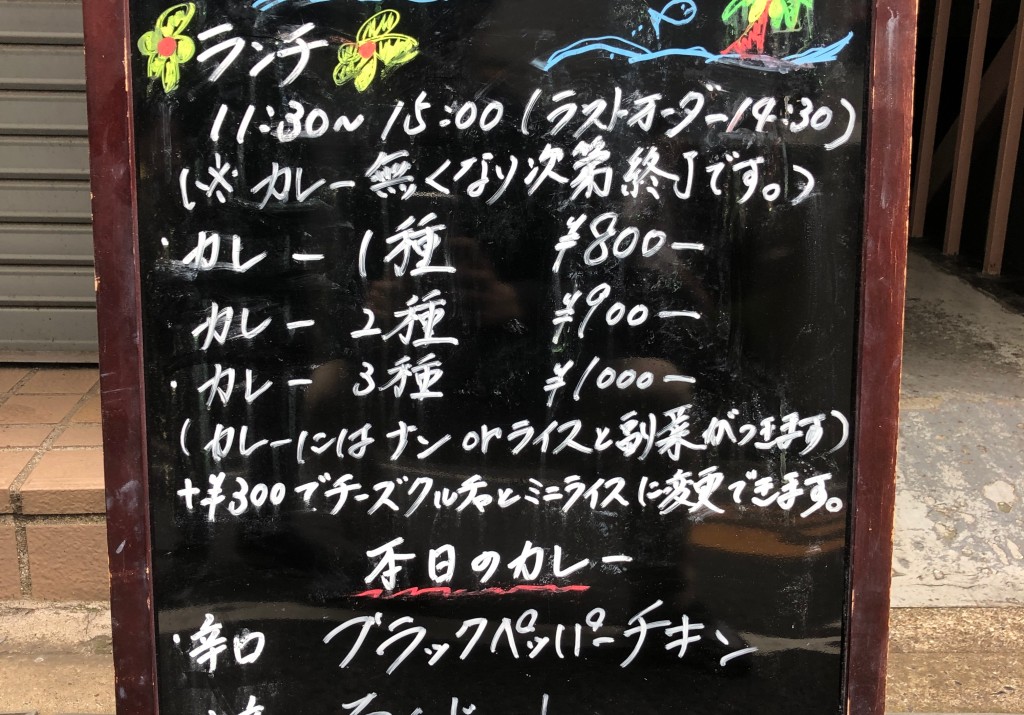 ランチ
11:30〜15:00(ラストオーダー14:30)
(※カレー無くなり次第終了です。)
・カレー1種 ¥800ー
カレー2種 ¥900ー
・カレー3種 ¥1000ー
(カレーにはナンorライスと副菜がつきます)
+¥300でチーズクルチャとミニライスに変更できます。
本日のカレー
・辛口 ブラックペッパーチキン